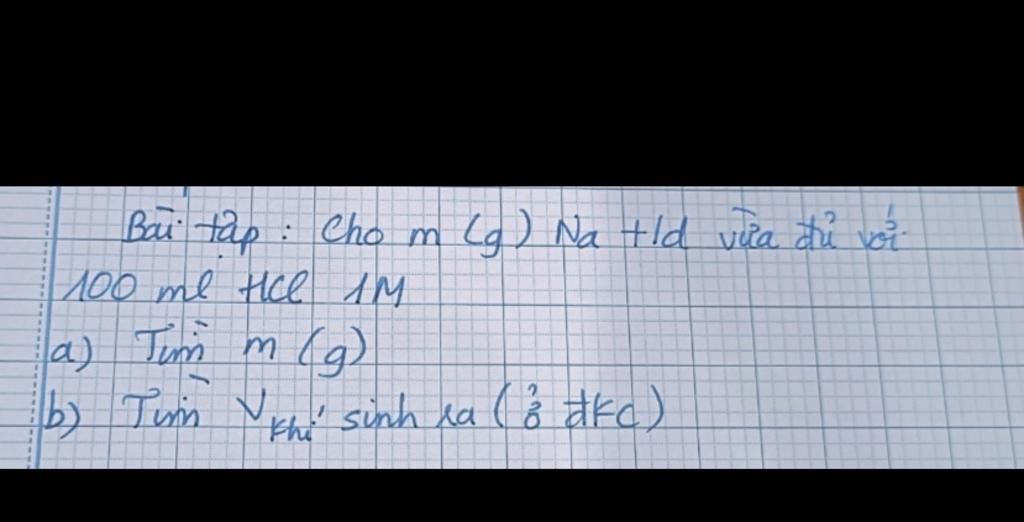 Bài tập : Cho m (g) Na t/d vừa đủ với
100 ml HCl 1M
a) Tìm m (g)
b) Tìm V khí sinh ra (ở đkc)